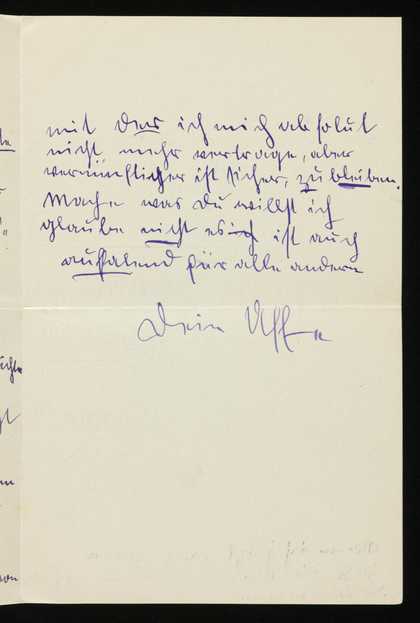 mit der ich mich absolut
nicht mehr vertrage, aber
vernünftiger ist sicher, zu bleiben.
Mache was Du willst ich
glaube nicht es ist auch
auffalend für alle andern
Dein Affe